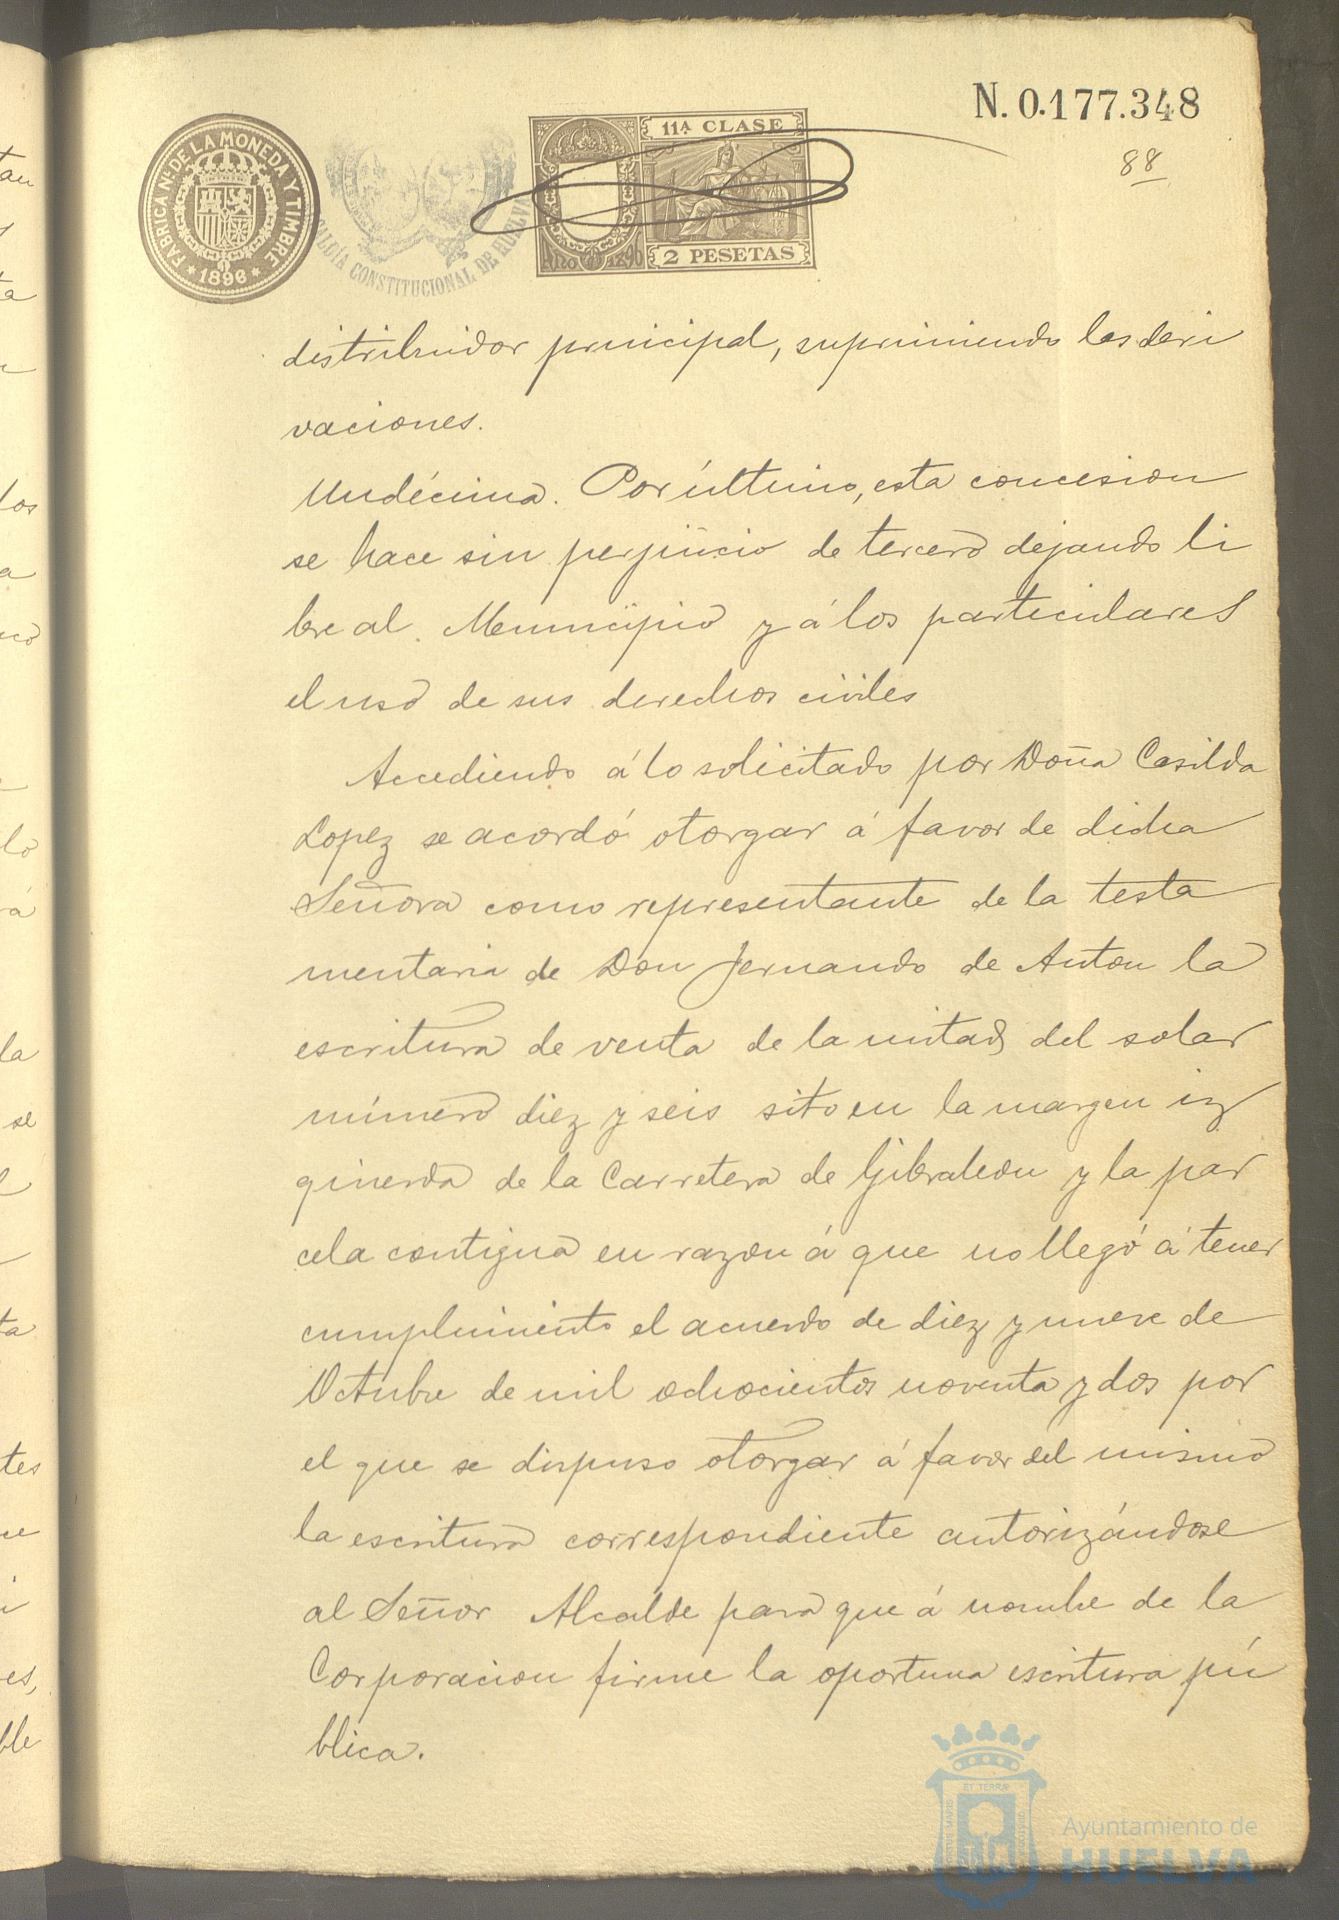 N. 0.177.348
88
FABRICA Nˡ DE LA MONEDA Y TIMBRE
* 1896 *
ALCALDÍA CONSTITUCIONAL DE HUELVA
11ᴬ CLASE
AÑO 1896
2 PESETAS
distribuidor principal, suprimiendo las deri
vaciones.
Undécima. Por último, esta concesion
se hace sin perjuicio de tercero dejando li
bre al Municipio y á los particulares
el uso de sus derechos civiles
Accediendo á lo solicitado por Doña Casilda
Lopez se acordó otorgar á favor de dicha
Señora como representante de la testa
mentaria de Don Fernando de Anton la
escritura de venta de la mitad del solar
número diez y seis sito en la margen iz
quierda de la Carretera de Gibraleon y la par
cela contigua en razon á que no llegó á tener
cumplimiento el acuerdo de diez y nueve de
Octubre de mil ochocientos noventa y dos por
el que se dispuso otorgar á favor del mismo
la escritura correspondiente autorizándose
al Señor Alcalde para que á nombre de la
Corporacion firme la oportuna escritura pú
blica.
Ayuntamiento de
HUELVA